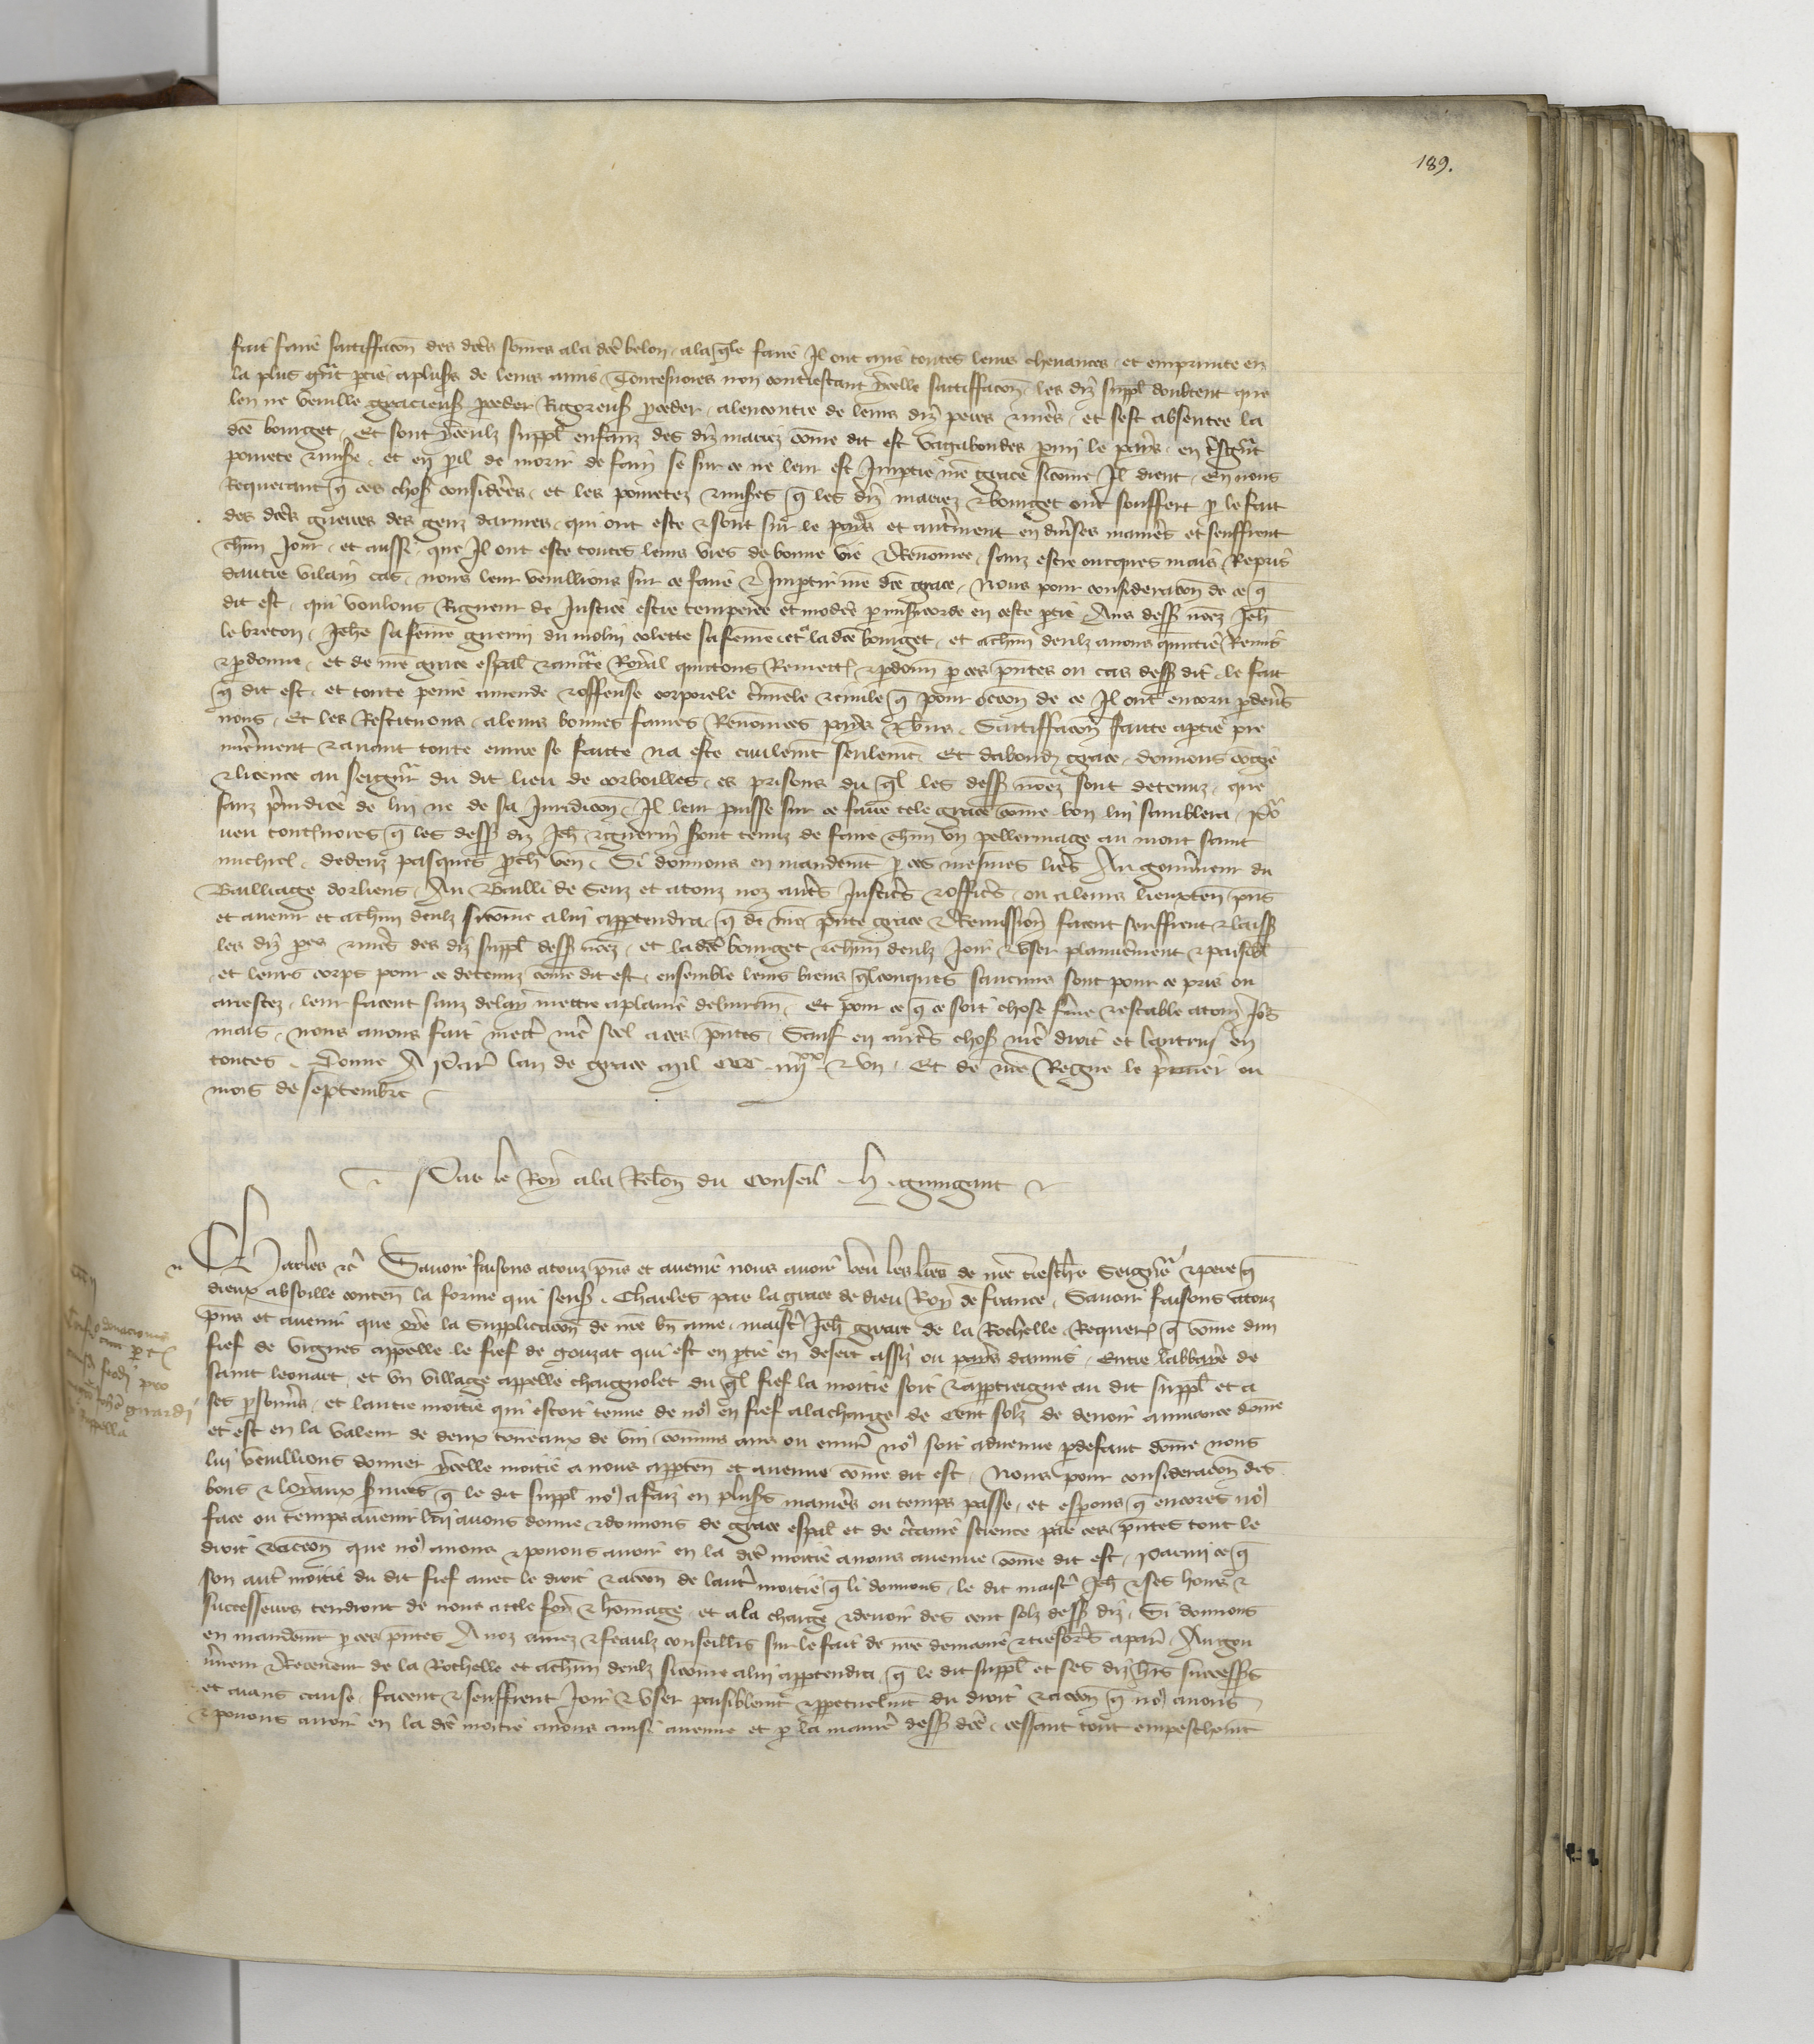 189.
fait faire sattiffacon des dces somes ala dce belon. alaqle faire Il ont mis toutes leurs chevances. et emprunte en
la plus gnt ptie apluss de leurs amis. Toutesvoies non contrestant ycelle sattiffacon. les diz suppl doubtent que
len ne veuille gracieuss pceder Rigoreuss pceder. alencontre de leurs diz peres & meres. et sest absentee la
dce bourget. Et sont yceulx suppl enfanz des diz mariez come dit est vagabondes pmi le pays. en tsgnt
povrete & misere. et en pil de morir de faim se sur ce ne leur est Impartie nre grace sicome Il dient. En nous
Requerant q ces choses considerees. et les povretez & miseres q les diz mariez & bourget ont souffert p le fait
des dces guerres des genz darmes. qui ont este & sont sur le pays et autrement en divses manies et seuffrent
chun Jour. et aussi que Il ont este toutes leurs vies de bonne vie & Renomee. sanz estre oncques mais Repris
dautre vilain cas. nous leur veuillions sur ce faire & Impartir nre dce grace. Nous pour consideracon de ce q
dit est. qui voulons Rigueur de Justice estre temperee et moderee p misericorde en ceste ptie. Aus dess nomez Jeh
le breton. Jehe sa feme guerin du molin colette sa feme et a la dce bourget. et achun deulx avons quittie Remis
& pdonne. et de nre grace espal & auctte Royal quittons Remett & pdonn p ces pntes ou cas dess dit. le fait
q dit est. et toute peine amende & offense corporele cminele & civile q pour occon de ce Il ont encoru pdevs
nous. Et les Restituons. aleurs bonnes fames Renomees pays & bns. Sattiffacon faitte aptie pre
mierment & avant toute euvre se faitte na este civilemt seulemt. Et dabond grace. donnons conge
& licence au seignr du dit lieu de corbeilles. es prisons du ql les dess nomez sont detenuz. que
sanz preiudice de lui ne de sa Juridicon. Il leur puisse sur ce faire tele grace come bon lui semblera. Pour
veu toutesvoies q les dess diz Jeh & guerin sont tenuz de faire chun vn pellermage au mont saint
michiel. dedenz pasques pch ven. Si donnons en mandemt p ces mesmes lres Au gouvneur du
Bailliage dorliens. Au Bailli de Senz et atouz noz autes Justices & officis. ou aleurs lieuxten pns
et avenir et achun deulx sicome alui appartendra. q de nre pnte grace & Remission facent seuffrent & laiss
les diz pes & meres des diz suppl dess nomez. et ladce bourget & chun deulx Joir & vser plainement & paisibl
et leurs corps pour ce detenuz come dit est. ensemble leurs biens qlconques saucuns sont pour ce pris ou
arrestez. leur facent sanz delay mettre aplaine delivran. Et pour ce q ce soit chose ferme & estable atouz jors
mais. nous avons fait mectre nre seel aces pntes. Sauf en autes choses nre droit et lautruy en
toutes. Donne A Paris lan de grace mil CCC iiijxx & vn. Et de nre Regne le premier ou
mois de Septembre
Par le Roy ala Relon du conseil. H. guingant
Charles &c Savoir faisons atouz pns et avenir nous avoir veu les lres de nre treschr Seigneur & pere q
dieux absoille conten la forme qui sensuit. Charles par la grace de dieu Roy de france. Savoir faisons atouz
pns et avenir que oye la Supplicacon de nre bn ame. maistre Jeh guart de la Rochelle. Requer q come dun
fief de vignes appelle le fief de gouzat qui est en ptie en desert assiz ou pays daunis. Entre labbaye de
saint leonart. et vn village appelle chaignolet du ql fief la moitie soit & appartieigne au dit suppl et a
ses psonis. et lautre moitie qui estoit tenue de nous en fief alacharge de Cent solz de devoir annuance dome
et est en la valeur de deux tonneaux de vin. comuns ans ou environ nous soit advenue pdefaut dome nous
lui veuillions donner ycelle moitie a nous apparten et avenue come dit est. Nous pour consideracon des
bons & loyaux services q le dit suppl nous a faiz en pluss manies ou temps passe. et esperons q encores nous
face ou temps avenir lui avons donne & donnons de grace espal et de ctaine science par ces pntes tout le
droit & accon que nous avons & povons avoir en la dce moitie anous avenue come dit est. Parmi ce q
son autre moitie du dit fief avec le droit & accon de lautre moitie q li donnons. le dit maistre Jeh & ses hoirs &
successeurs tendront de nous atele foy & homage. et ala charge & devoir des cent solz dess diz. Si donnons
en mandemt p ces pntes Anoz amez & feaulx conseilliers sur le fait de nre demaine & tresories aparis. Au gou
vneur & Receveur de la Rochelle et achun deulx sicome alui appartendra. q le dit suppl et ses diz hrs successs
et aians cause. facent & seuffrent Joir & vser paisiblemt & ppetuelmt du droit & accon q nous avons
& povons avoir en la dce moitie anous ainsi avenue et p la manie dess dce. cessant tout empeschemt